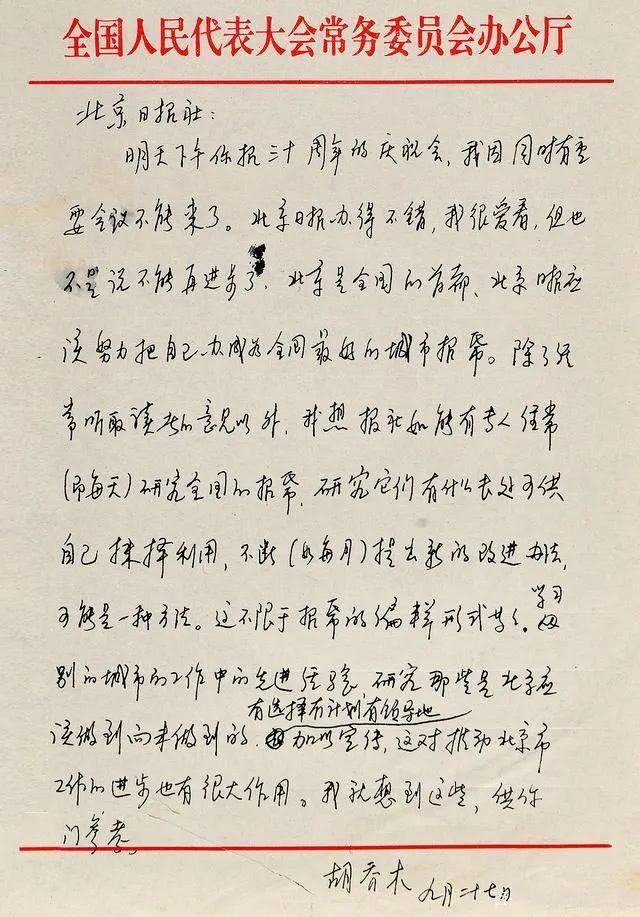 全国人民代表大会常务委员会办公厅
北京日报社：
明天下午你报三十周年的庆祝会，我因同时有重
要会议不能来了。北京日报办得不错，我很爱看，但也
不是说不能再进步了。北京是全国的首都，北京日报应
该努力把自己办成为全国最好的城市报纸。除了经
常听取读者的意见以外，我想报社如能有专人经常
（即每天）研究全国的报纸，研究它们有什么长处可供
自己采择利用，不断（如每月）提出新的改进办法，
可能是一种方法。这不限于报纸的编辑形式等等。学习
别的城市的工作中的先进经验，研究那些是北京应
有选择有计划有领导地
该做到而未做到的，加以宣传，这对推动北京市
工作的进步也有很大作用。我就想到这些，供你
们参考。
胡乔木 九月二十七日